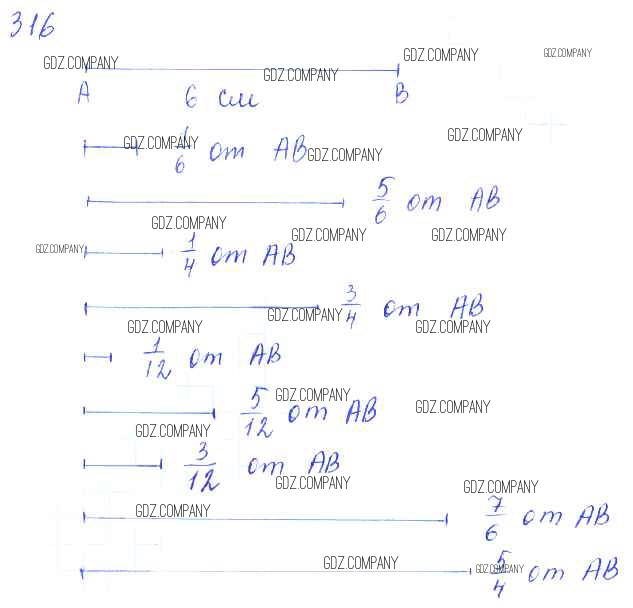 316
GDZ.COMPANY GDZ.COMPANY
GDZ.COMPANY GDZ.COMPANY
A 6 см B
GDZ.COMPANY
GDZ.COMPANY 1/6 от AB GDZ.COMPANY
5/6 от AB
GDZ.COMPANY
GDZ.COMPANY GDZ.COMPANY
GDZ.COMPANY 1/4 от AB
3/4 от AB
GDZ.COMPANY
GDZ.COMPANY GDZ.COMPANY
1/12 от AB
GDZ.COMPANY
5/12 от AB GDZ.COMPANY
GDZ.COMPANY
3/12 от AB
GDZ.COMPANY GDZ.COMPANY
GDZ.COMPANY
7/6 от AB
GDZ.COMPANY GDZ.COMPANY
5/4 от AB